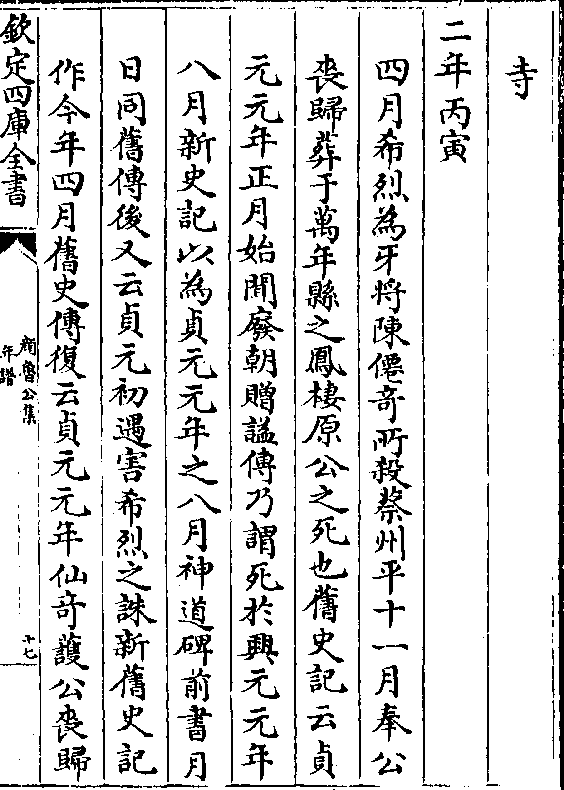 寺
二年丙寅
四月希烈為牙將陳僊竒所殺蔡州平十一月奉公
喪歸葬于萬年縣之鳳棲原公之死也舊史記云貞
元元年正月始聞廢朝贈諡傳乃謂死於興元元年
八月新史記以為貞元元年之八月神道碑前書月
日同舊傳後又云貞元初遇害希烈之誅新舊史記
作今年四月舊史傳復云貞元元年仙竒護公喪歸
欽定四庫全書
顔魯公集
年譜
十七